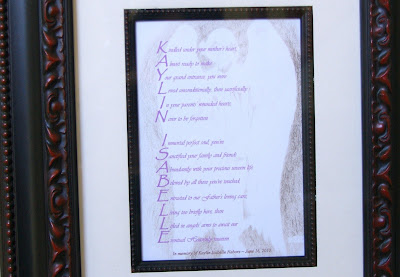 Kindled under your mother's heart,
Almost ready to make
Your grand entrance, you were
Loved unconditionally, then sacrificially
In your parents' wounded hearts,
Never to be forgotten.
Immortal perfect soul, you've
Sanctified your family and friends
Abundantly with your precious unseen life.
Adored by all those you've touched,
Entrusted to our Father's loving care,
Living too briefly here, then
Lifted in angels' arms to await our
Eventual Heavenly reunion
In memory of Kaylin Isabelle ~ June 15, 2010